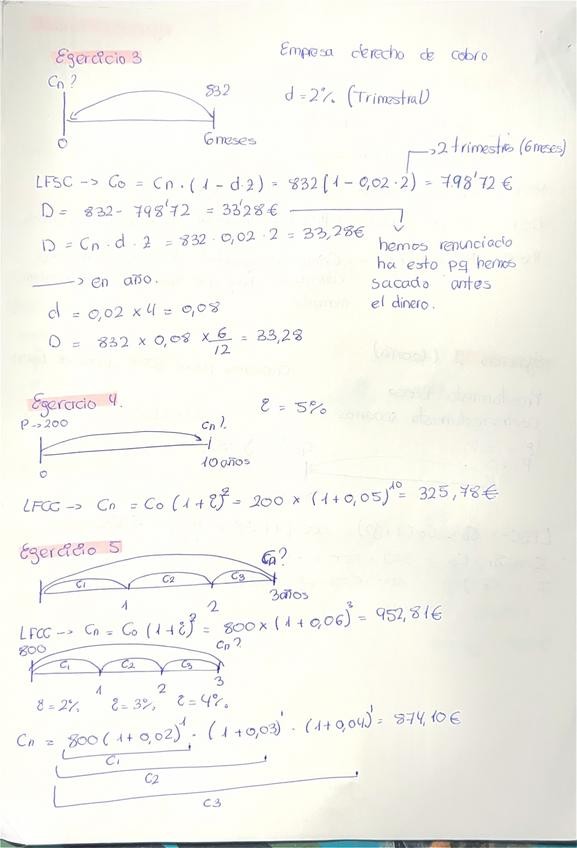 Egercicio 3
Empresa derecho de cobro
Cn?
832
d = 2% (Trimestral)
0
6 meses
2 trimestres (6 meses)
LFSC -> Co = Cn · (1 - d·z) = 832 (1 - 0,02 · 2) = 798'72 €
D = 832 - 798'72 = 33'28 €
D = Cn · d · z = 832 · 0,02 · 2 = 33,28€
hemos renunciado
ha esto pq hemos
sacado antes
el dinero.
-> en año.
d = 0,02 x 4 = 0,08
D = 832 x 0,08 x 6/12 = 33,28
Egercicio 4.
i = 5%
P -> 200
Cn?
0
10 años
LFCC -> Cn = Co (1+i)^z = 200 x (1+0,05)^10 = 325,78€
Egercicio 5
Cn?
C1
C2
C3
1
2
3 años
LFCC -> Cn = Co (1+i)^z = 800 x (1+0,06)^3 = 952,81€
800
Cn?
C1
C2
C3
1
2
3
i = 2%
i = 3%
i = 4%
Cn = 800 (1+0,02)^1 · (1+0,03)^1 · (1+0,04)^1 = 874,10€
C1
C2
C3